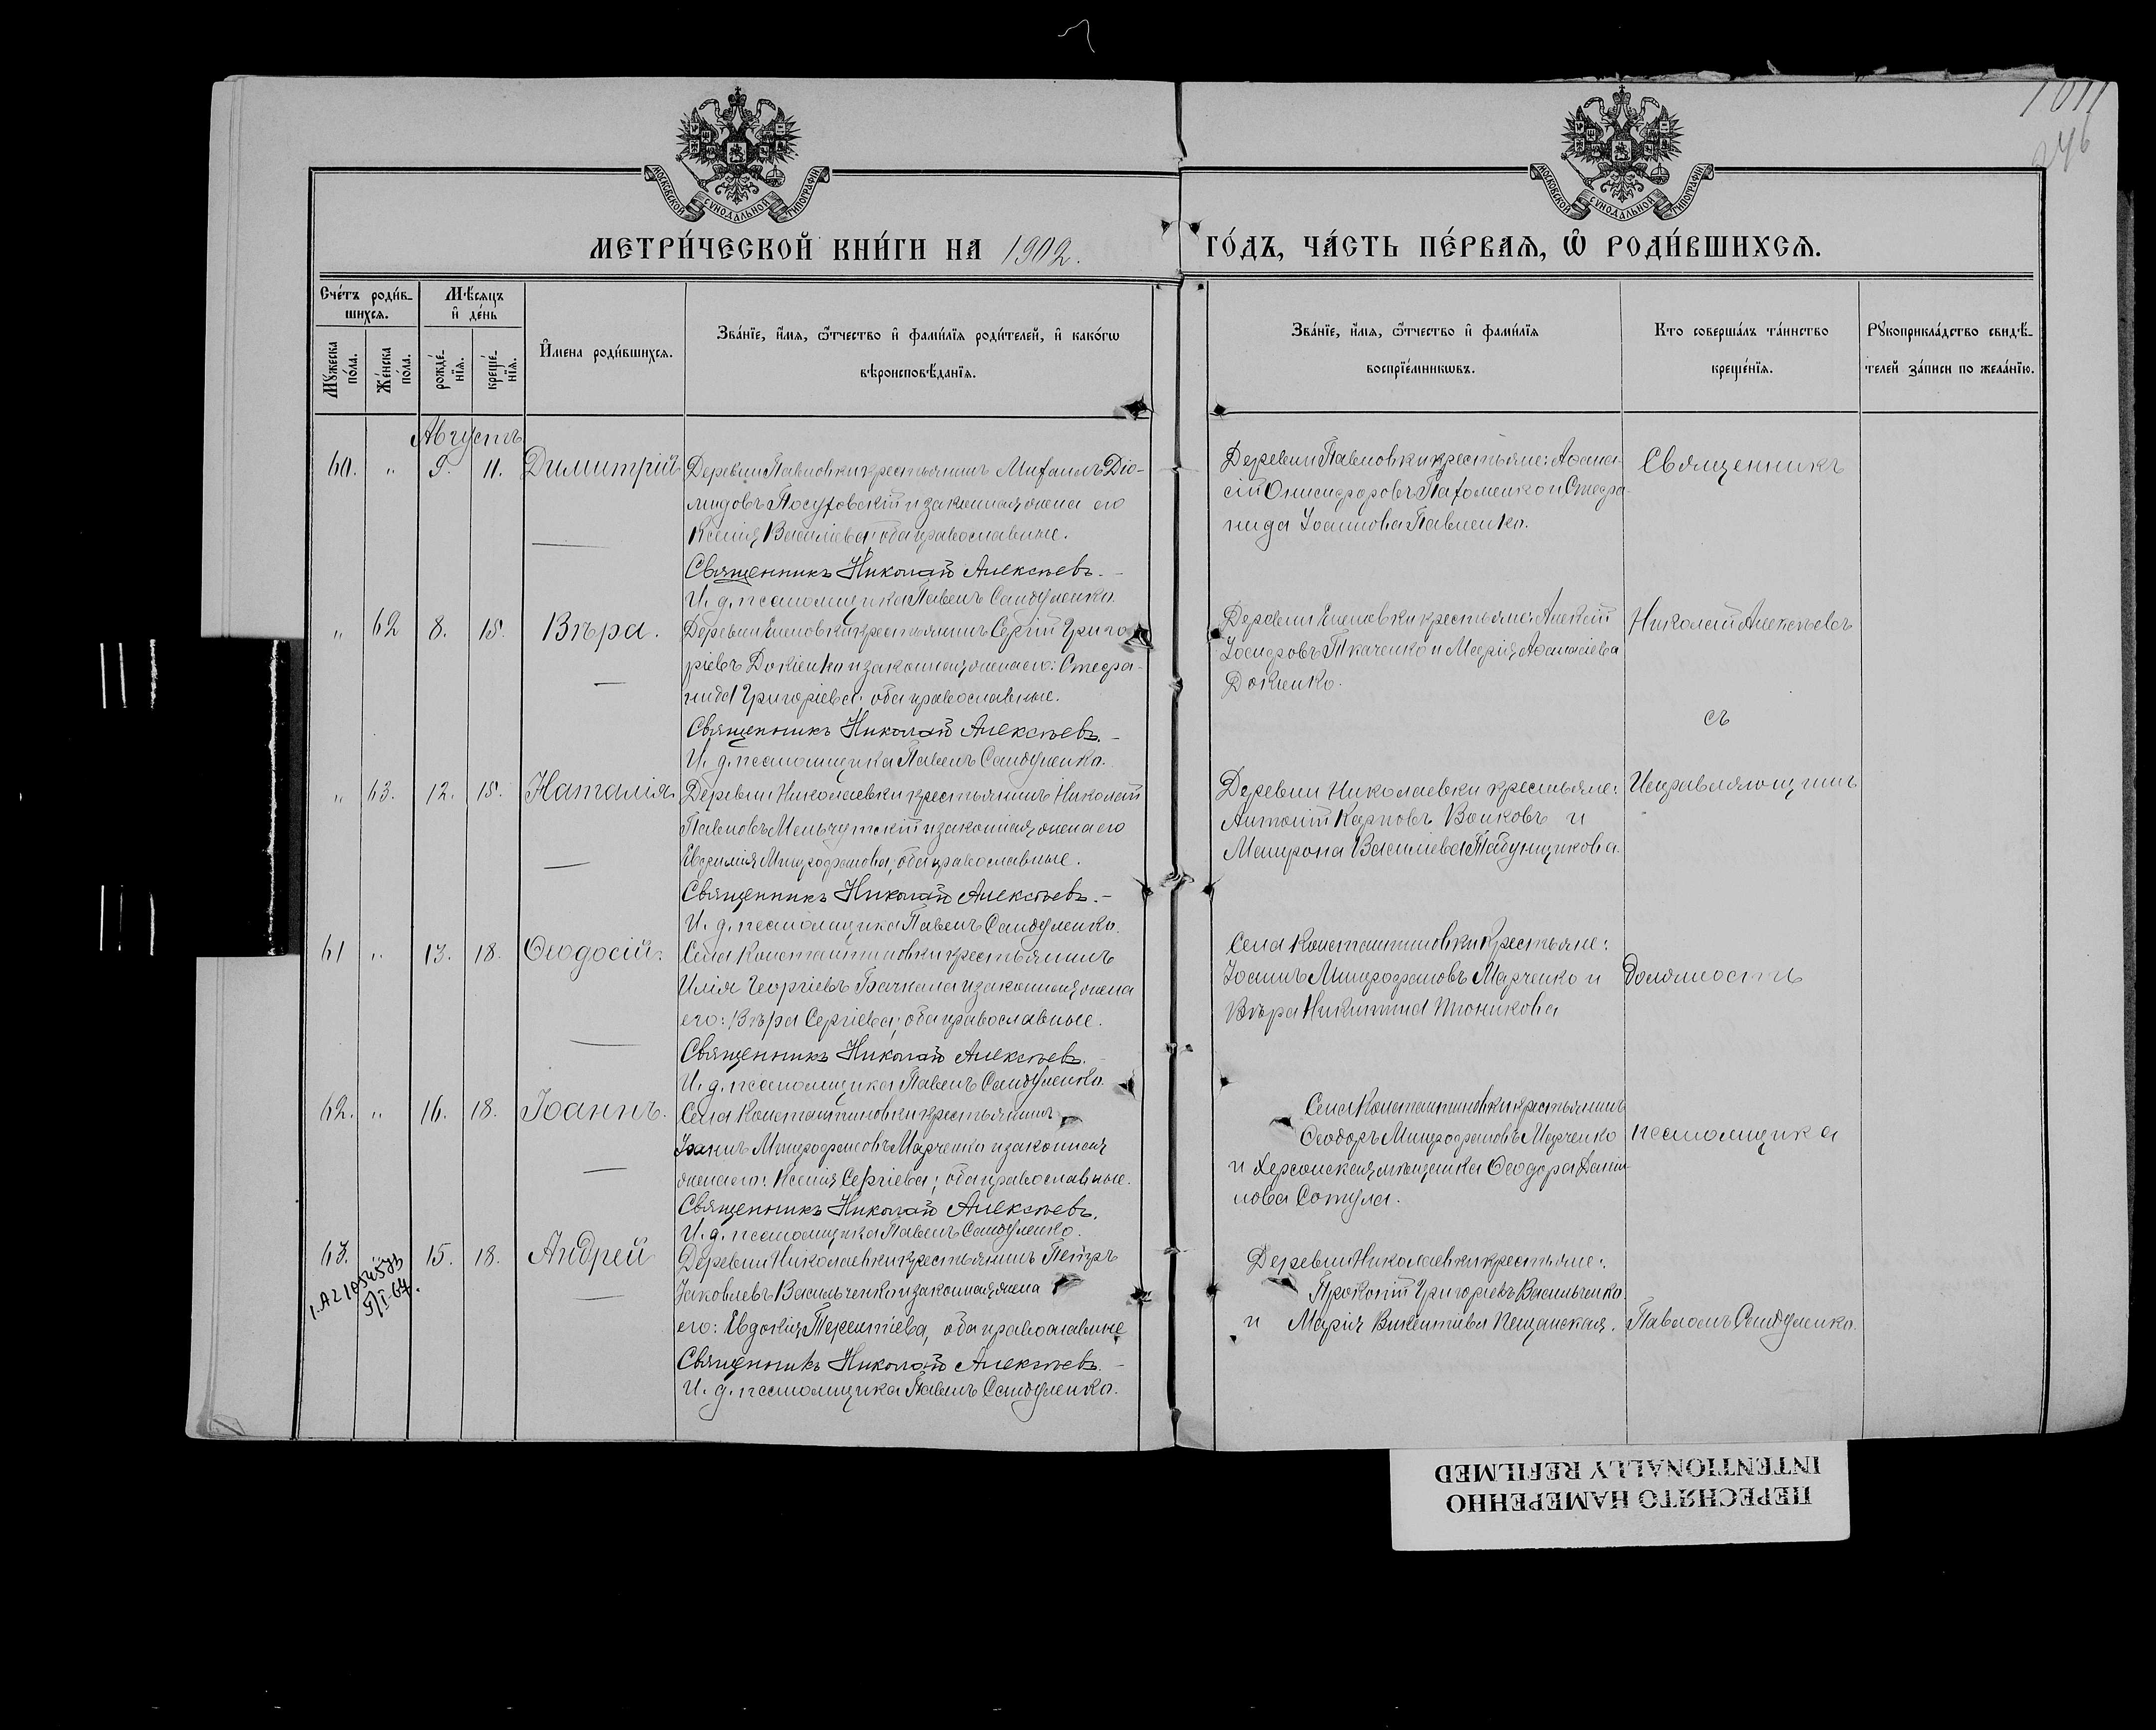 1011
246
МОСКОВСКОЙ СѴНОДАЛЬНОЙ ТИПОГРАФІИ
МОСКОВСКОЙ СѴНОДАЛЬНОЙ ТИПОГРАФІИ
МЕТРИ́ЧЕСКОЙ КНИ́ГИ НА 1902. ГО́ДЪ, ЧА́СТЬ ПЕ́РВАѦ, Ѽ РОДИ́ВШИХСѦ.
Сче́тъ роди́в-
шихсѧ.
Мꙋ́жеска по́ла.
Же́нска по́ла.
Мѣ́сѧцъ и҆ де́нь
рожде́-нїѧ.
креще́-нїѧ.
И҆мена роди́вшихсѧ.
Зва́нїе, и҆́мѧ, ѻ҆́тчество и҆ фами́лїѧ роди́телей, и҆ како́гѡ
вѣроисповѣ́данїѧ.
Зва́нїе, и҆́мѧ, ѻ҆́тчество и҆ фами́лїѧ
воспрїе́мникѡвъ.
Кто соверша́лъ та́инство
креще́нїѧ.
Рꙋкоприкла́дство свидѣ́-
телей за́писи по жела́нїю.
Августъ
60. " 9. 11. Димитрій
Деревни Павловки крестьянинъ Михаилъ Діо-
мидовъ Посуховскій и законная жена его
Ксенія Васильева; оба православные.
Священникъ Николай Алексѣевъ.
И. д. псаломщика Павелъ Сандуленко.
Деревни Павловки крестьяне: Аѳана-
сій Онисифоровъ Пахоменко и Стефа-
нида Іоаннова Павленко.
Священникъ
" 62 8. 15. Вѣра.
Деревни Еленовки крестьянинъ Сергій Григо-
ріевъ Докіенко и законная жена его: Стефа-
нида Григоріева; оба православные.
Священникъ Николай Алексѣевъ.
И. д. псаломщика Павелъ Сандуленко.
Деревни Еленовки крестьяне: Алексій
Іосифовъ Ткаченко и Марія Аѳанасіева
Докіенко.
Николай Алексѣевъ
съ
" 63. 12. 15. Наталія
Деревни Николаевки крестьянинъ Николай
Павловъ и законная жена его
Евфимія Митрофанова; оба православные.
Священникъ Николай Алексѣевъ.
И. д. псаломщика Павелъ Сандуленко.
Деревни Николаевки крестьяне:
Антоній Карповъ Волковъ и
Матрона Васильева Табунщикова.
Исправляющимъ
61 " 13. 18. Ѳеодосій.
Села Константиновки крестьянинъ
Илія Георгіевъ Бачкала и законная жена
его: Вѣра Сергіева; оба православные.
Священникъ Николай Алексѣевъ.
И. д. псаломщика Павелъ Сандуленко.
Села Константиновки крестьяне:
Іоаннъ Митрофановъ Марченко и
Вѣра Никитина
Должность
62. " 16. 18. Іоаннъ.
Села Константиновки крестьянинъ
Іоаннъ Митрофановъ Марченко и законная
жена его: Ксенія Сергіева; оба православные.
Священникъ Николай Алексѣевъ.
И. д. псаломщика Павелъ Сандуленко.
Села Константиновки крестьянинъ
Ѳеодоръ Митрофановъ Марченко
и Херсонская мѣщанка Ѳеодора Даніи-
лова Сотула.
псаломщика
63. 15. 18. Андрей
Деревни Николаевки крестьянинъ Петръ
Іаковлевъ Васильченко и законная жена
его: Евдокія Терентіева, оба православные
Священникъ Николай Алексѣевъ.
И. д. псаломщика Павелъ Сандуленко.
Деревни Николаевки крестьяне:
Прокопій Григоріевъ Васильченко
и Марія Викентіева Песчанская.
Павломъ Сандуленко.
ПЕРЕСНЯТО НАМЕРЕННО
INTENTIONALLY REFILMED